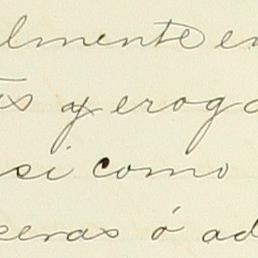 almente en
és y eroga
si como
ceras ó ad